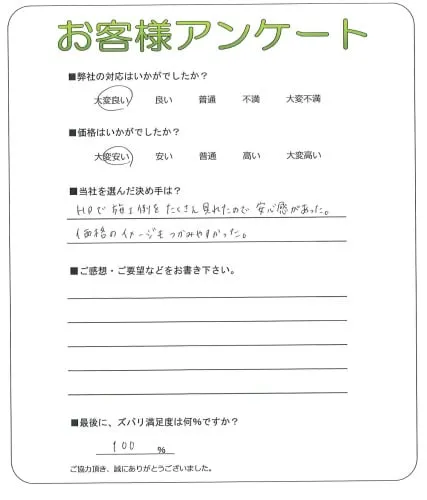 お客様アンケート
■弊社の対応はいかがでしたか？
大変良い 良い 普通 不満 大変不満
■価格はいかがでしたか？
大変安い 安い 普通 高い 大変高い
■当社を選んだ決め手は？
HPで施工例をたくさん見れたので安心感があった。
価格のイメージもつかみやすかった。
■ご感想・ご要望などをお書き下さい。
■最後に、ズバリ満足度は何％ですか？
100 ％
ご協力頂き、誠にありがとうございました。